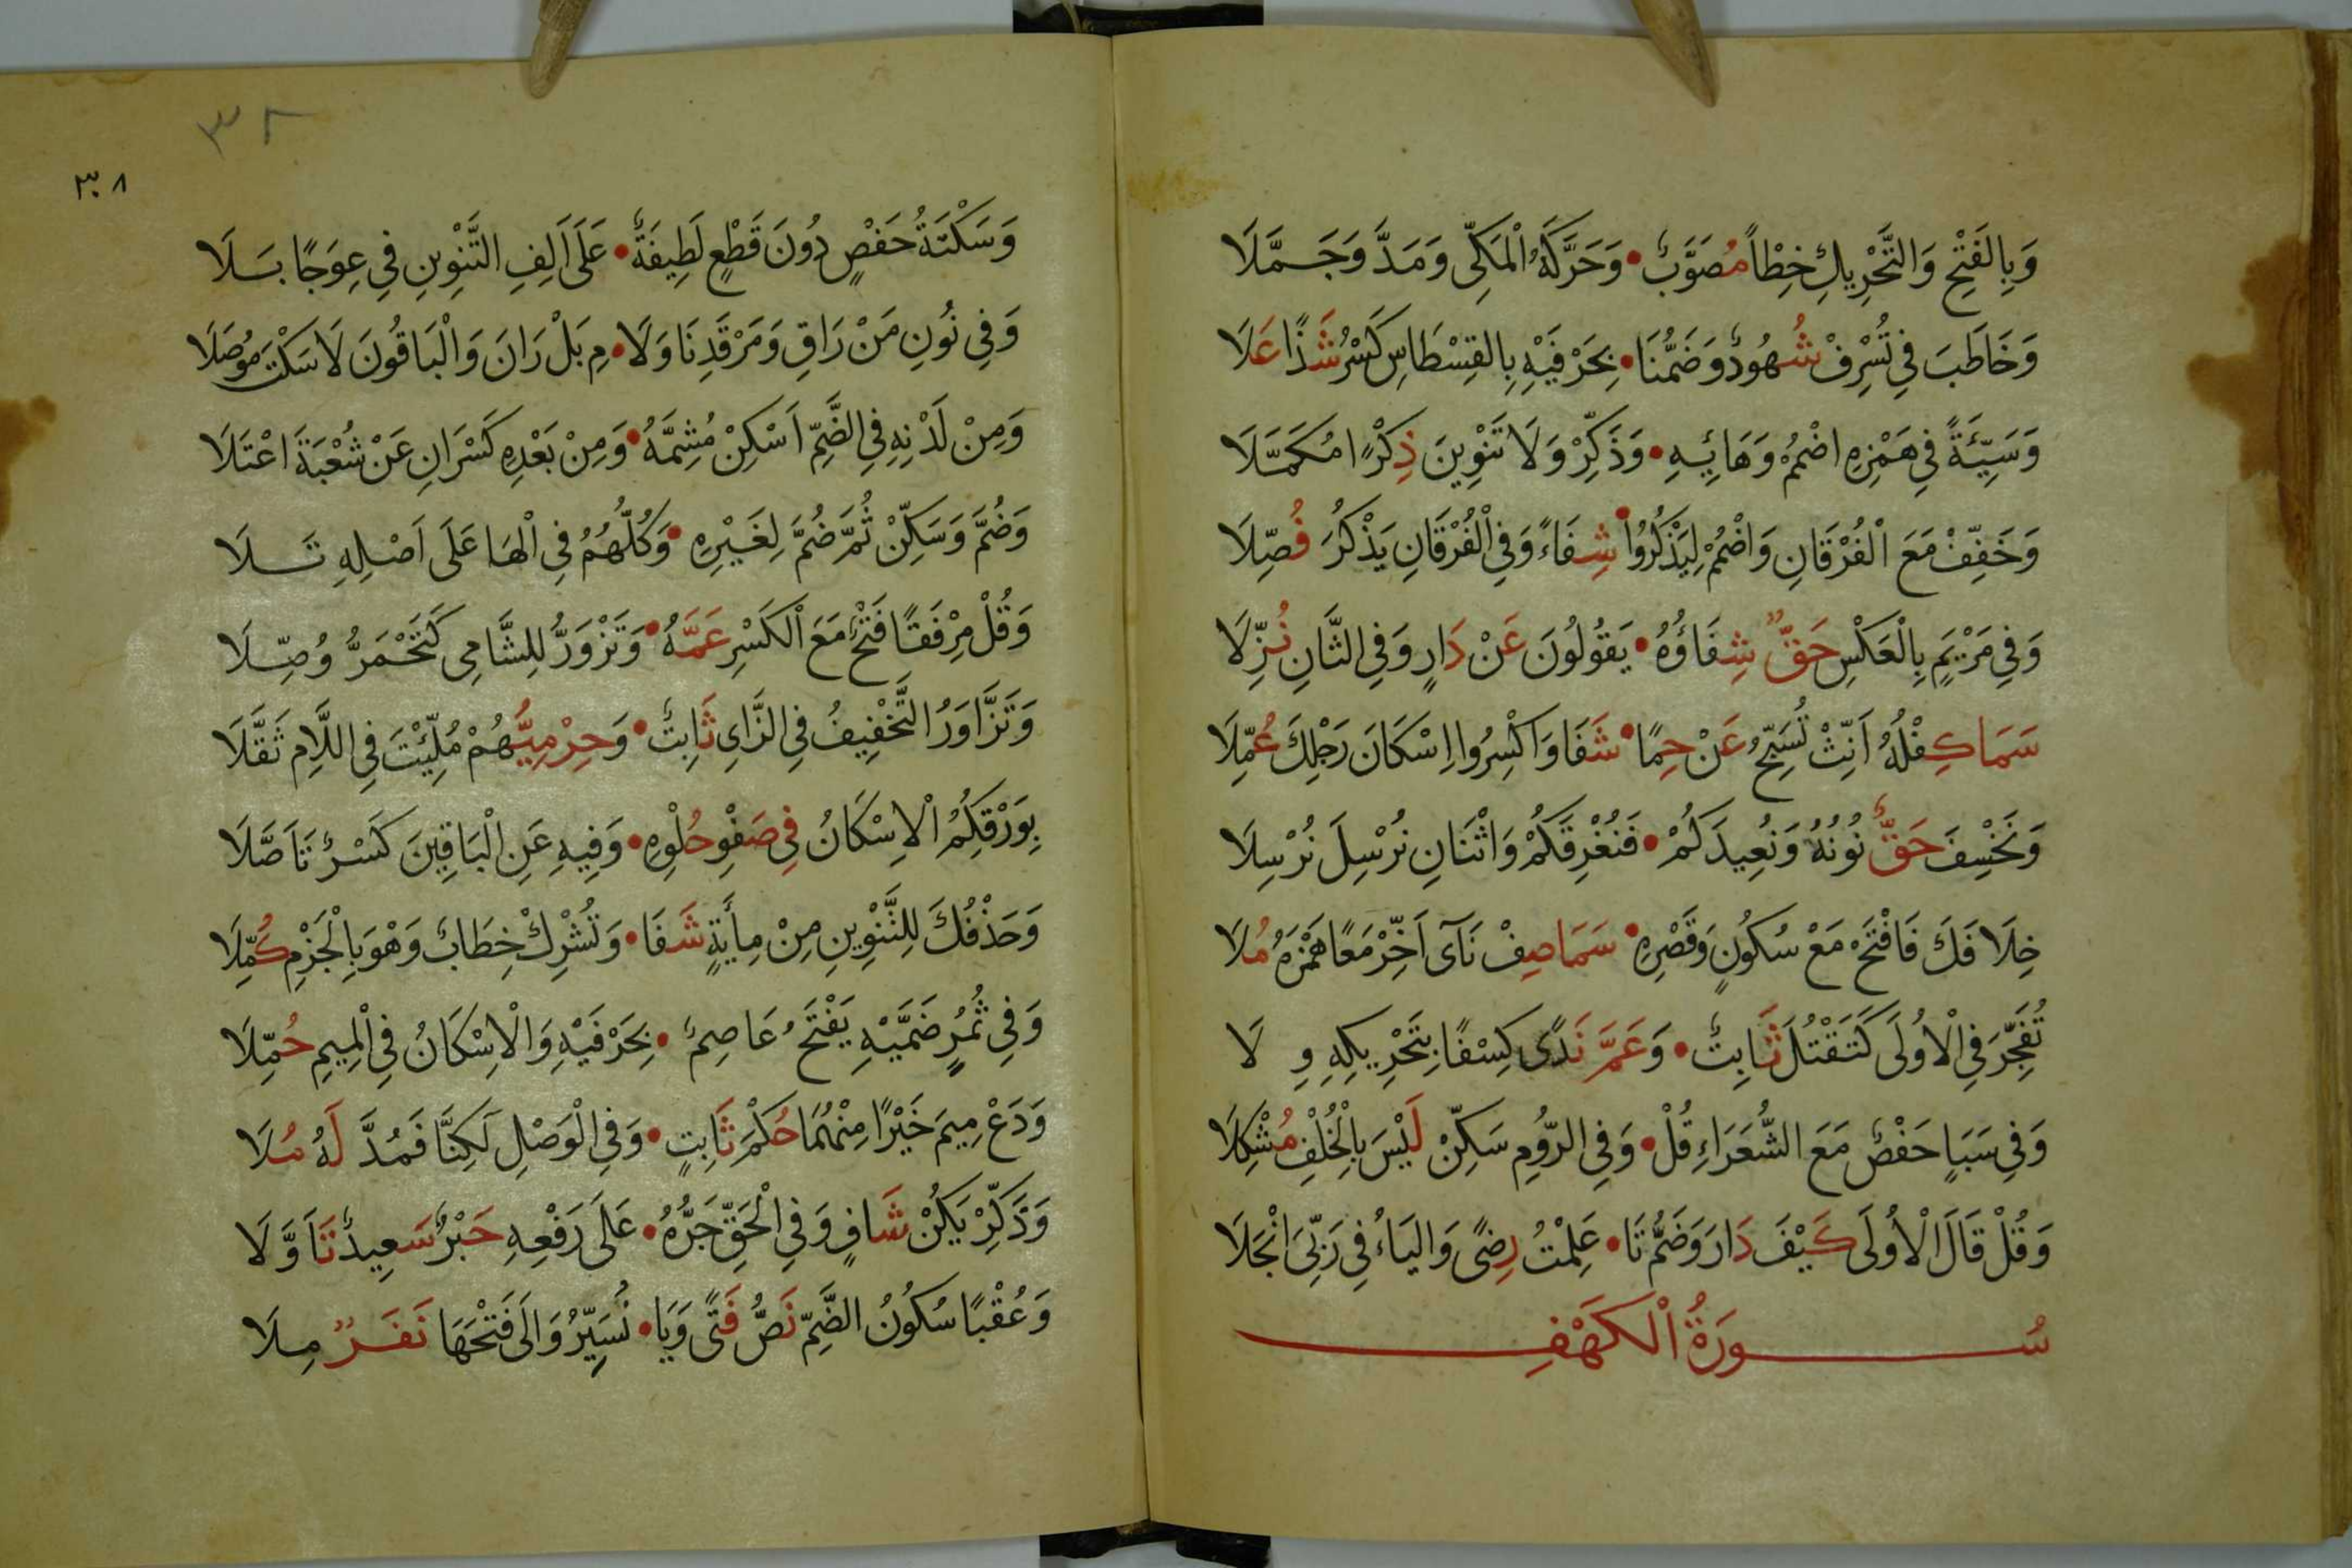 وَبِالفَتْحِ وَالتَّحْرِيكِ خِطْأً مُصَوَّبٌ • وَحَرَّكَهُ الْمَكِّى وَمَدَّ وَجَمَّلَا
وَخَاطَبَ فِي تُسْرِفْ شُهُودٌ وَضَمُّنَا • بِحَرْفَيْهِ بِالقِسْطَاسِ كَسْرُ شَذًا عَلَا
وَسَيِّئَةً فِي هَمْزِهِ اضْمُمْ وَهَائِهِ • وَذَكِّرْ وَلَا تَنْوِينَ ذِكْرًا مُكَمَّلَا
وَخَفِّفْ مَعَ الْفُرْقَانِ وَاضْمُمْ لِيَذْكُرُوا • شِفَاءً وَفِي الْفُرْقَانِ يَذْكُرُ فُصِّلَا
وَفِي مَرْيَمٍ بِالْعَكْسِ حَقٌّ شِفَاؤُهُ • يَقُولُونَ عَنْ دَارٍ وَفِي الثَّانِ نُزِّلَا
سَمَا كِفْلُهُ أَنِّثْ تُسَبِّحُ عَنْ حِمًا • شَفَا وَاكْسِرُوا اِسْكَانَ رَجْلِكَ عُمِّلَا
وَنَخْسِفَ حَقٌّ نُونُهُ وَنُعِيدَكُمْ • فَنُغْرِقَكُمْ وَاثْنَانِ نُرْسِلَ نُرْسِلَا
خِلَافَكَ فَافْتَحْ مَعْ سُكُونٍ وَقَصْرِهِ • سَمَا صِفْ نَآى اَخِّرْ مَعًا هَمْزَهُ مُلَا
تُفَجِّرَ فِي الْاُولَى كَتَقْتُلَ ثَابِتٌ • وَعَمَّ نَدًى كِسْفًا بِتَحْرِيكِهِ وِلَا
وَفِي سَبَإٍ حَفْصٌ مَعَ الشُّعَرَاءِ قُلْ • وَفِي الرُّومِ سَكِّنْ لَيْسَ بِالْخُلْفِ مُشْكِلَا
وَقُلْ قَالَ الْاُولَى كَيْفَ دَارَ وَضَمُّ تَا • عَلِمْتُ رِضًى وَاليَاءُ فِي رَبِّىَ انْجَلَا
سُورَةُ الْكَهْفِ
٣٨
٣٨
وَسَكْتَةُ حَفْصٍ دُونَ قَطْعٍ لَطِيفَةٌ • عَلَى اَلِفِ التَّنْوِينِ فِي عِوَجًا بَلَا
وَفِي نُونِ مَنْ رَاقٍ وَمَرْقَدِنَا وَلَا • مِ بَلْ رَانَ وَالْبَاقُونَ لَا سَكْتَ مُوصَلَا
وَمِنْ لَدْنِهِ فِي الضَّمِّ اَسْكِنْ مُشِمَّهُ • وَمِنْ بَعْدِهِ كَسْرَانِ عَنْ شُعْبَةَ اعْتَلَا
وَضُمَّ وَسَكِّنْ ثُمَّ ضُمَّ لِغَيْرِهِ • وَكُلُّهُمُ فِي الْهَا عَلَى اَصْلِهِ تَلَا
وَقُلْ مِرْفَقًا فَتْحٌ مَعَ الْكَسْرِ عَمَّهُ • وَتَزْوَرُّ لِلشَّامِى كَتَحْمَرُّ وُصِّلَا
وَتَزَّاوَرُ التَّخْفِيفُ فِي الزَّاىِ ثَابِتٌ • وَحِرْمِيُّهُمْ مُلِّئْتَ فِي اللَّامِ ثَقَّلَا
بِوَرْقِكُمُ الْاِسْكَانُ فِي صَفْوِ حُلْوِهِ • وَفِيهِ عَنِ الْبَاقِينَ كَسْرٌ تَاَصَّلَا
وَحَذْفُكَ لِلتَّنْوِينِ مِنْ مِأَيَةٍ شَفَا • وَتُشْرِكْ خِطَابٌ وَهْوَ بِالْجَزْمِ كُمِّلَا
وَفِي ثُمُرٍ ضَمَّيْهِ يَفْتَحُ عَاصِمٌ • بِحَرْفَيْهِ وَالْاِسْكَانُ فِي الْمِيمِ حُمِّلَا
وَدَعْ مِيمَ خَيْرًا مِنْهُمَا حُكْمَ ثَابِتٍ • وَفِي الْوَصْلِ لَكِنَّا فَمُدَّ لَهُ مُلَا
وَذَكِّرْ يَكُنْ شَافٍ وَفِي الْحَقِّ جَرُّهُ • عَلَى رَفْعِهِ حَبْرٌ سَعِيدٌ تَاَوَّلَا
وَعُقْبًا سُكُونُ الضَّمِّ نَصُّ فَتًى وَيَا • نُسَيِّرُ وَالَى فَتْحَهَا نَفَرٌ مِلَا